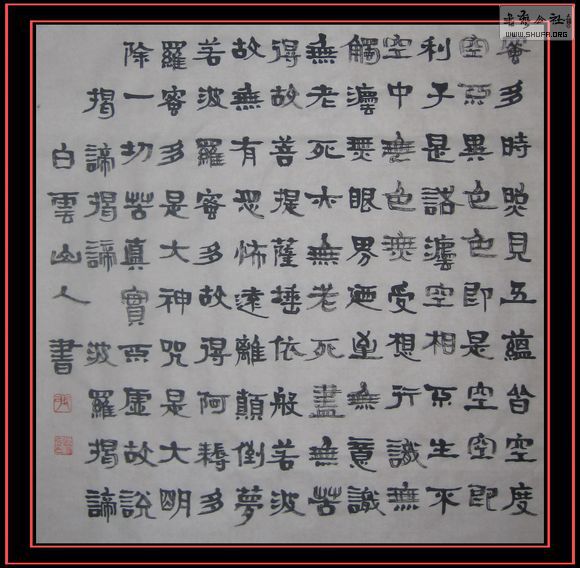 蜜多時照見五蘊皆空度
空不異色色即是空空即
利子是諸灋空相不生不
空中無色無受想行識無
觸灋無眼界廼至無意識
無老死亦無老死盡無苦
得故菩提薩埵依般若波
故無有恐怖遠離顛倒夢
若波羅蜜多故得阿耨多
羅蜜多是大神咒是大明
除一切苦真實不虛故說
揭諦揭諦波羅揭諦
白雲山人書
公社
WWW.SHUFA.ORG